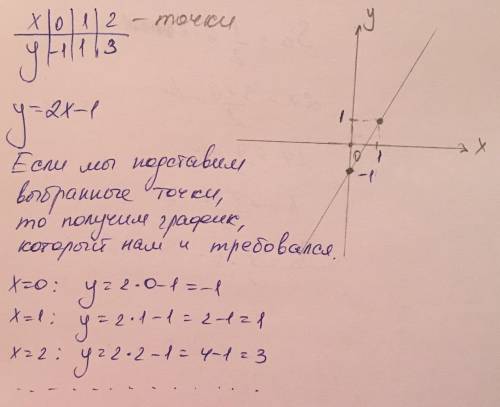 x | 0 | 1 | 2 – точки
y | -1 | 1 | 3
y=2x-1
Если мы подставим
выбранные точки,
то получим график,
который нам и требовался.
x=0: y=2·0-1=-1
x=1: y=2·1-1=2-1=1
x=2: y=2·2-1=4-1=3
y
1
0 1 x
-1